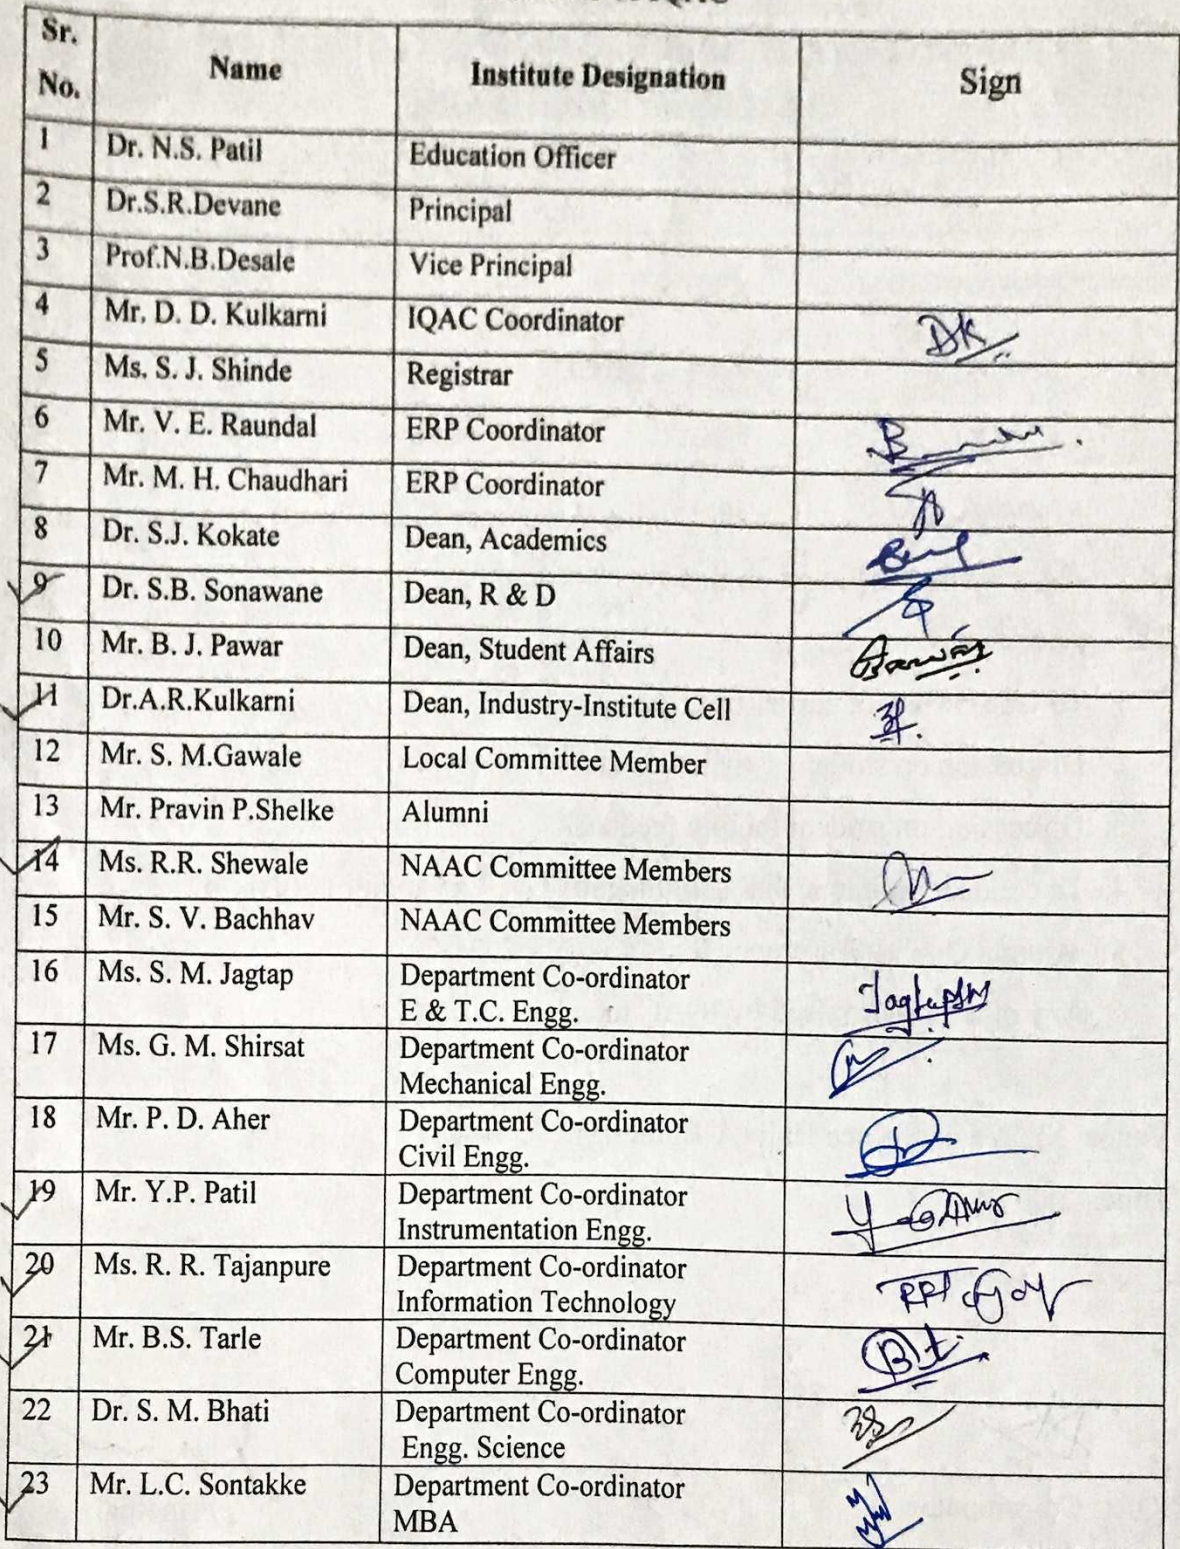 Sr. No. Name Institute Designation Sign
1 Dr. N.S. Patil Education Officer
2 Dr.S.R.Devane Principal
3 Prof.N.B.Desale Vice Principal
4 Mr. D. D. Kulkarni IQAC Coordinator DK
5 Ms. S. J. Shinde Registrar
6 Mr. V. E. Raundal ERP Coordinator
7 Mr. M. H. Chaudhari ERP Coordinator
8 Dr. S.J. Kokate Dean, Academics
9 Dr. S.B. Sonawane Dean, R & D
10 Mr. B. J. Pawar Dean, Student Affairs
11 Dr.A.R.Kulkarni Dean, Industry-Institute Cell
12 Mr. S. M.Gawale Local Committee Member
13 Mr. Pravin P.Shelke Alumni
14 Ms. R.R. Shewale NAAC Committee Members
15 Mr. S. V. Bachhav NAAC Committee Members
16 Ms. S. M. Jagtap Department Co-ordinator
E & T.C. Engg.
17 Ms. G. M. Shirsat Department Co-ordinator
Mechanical Engg.
18 Mr. P. D. Aher Department Co-ordinator
Civil Engg.
19 Mr. Y.P. Patil Department Co-ordinator
Instrumentation Engg.
20 Ms. R. R. Tajanpure Department Co-ordinator
Information Technology
21 Mr. B.S. Tarle Department Co-ordinator
Computer Engg.
22 Dr. S. M. Bhati Department Co-ordinator
Engg. Science
23 Mr. L.C. Sontakke Department Co-ordinator
MBA